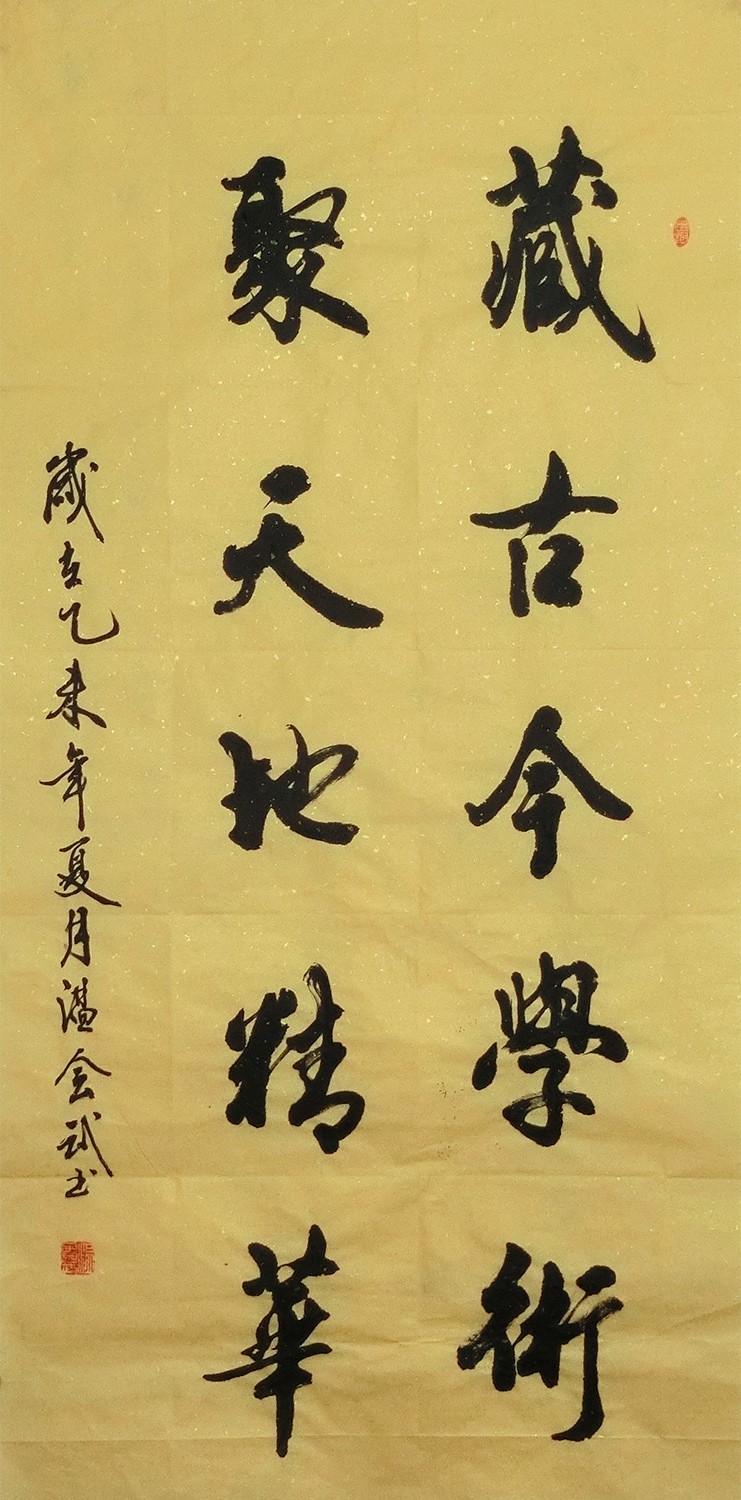 藏古今學術
聚天地精華
歲在乙未年夏月温会武书